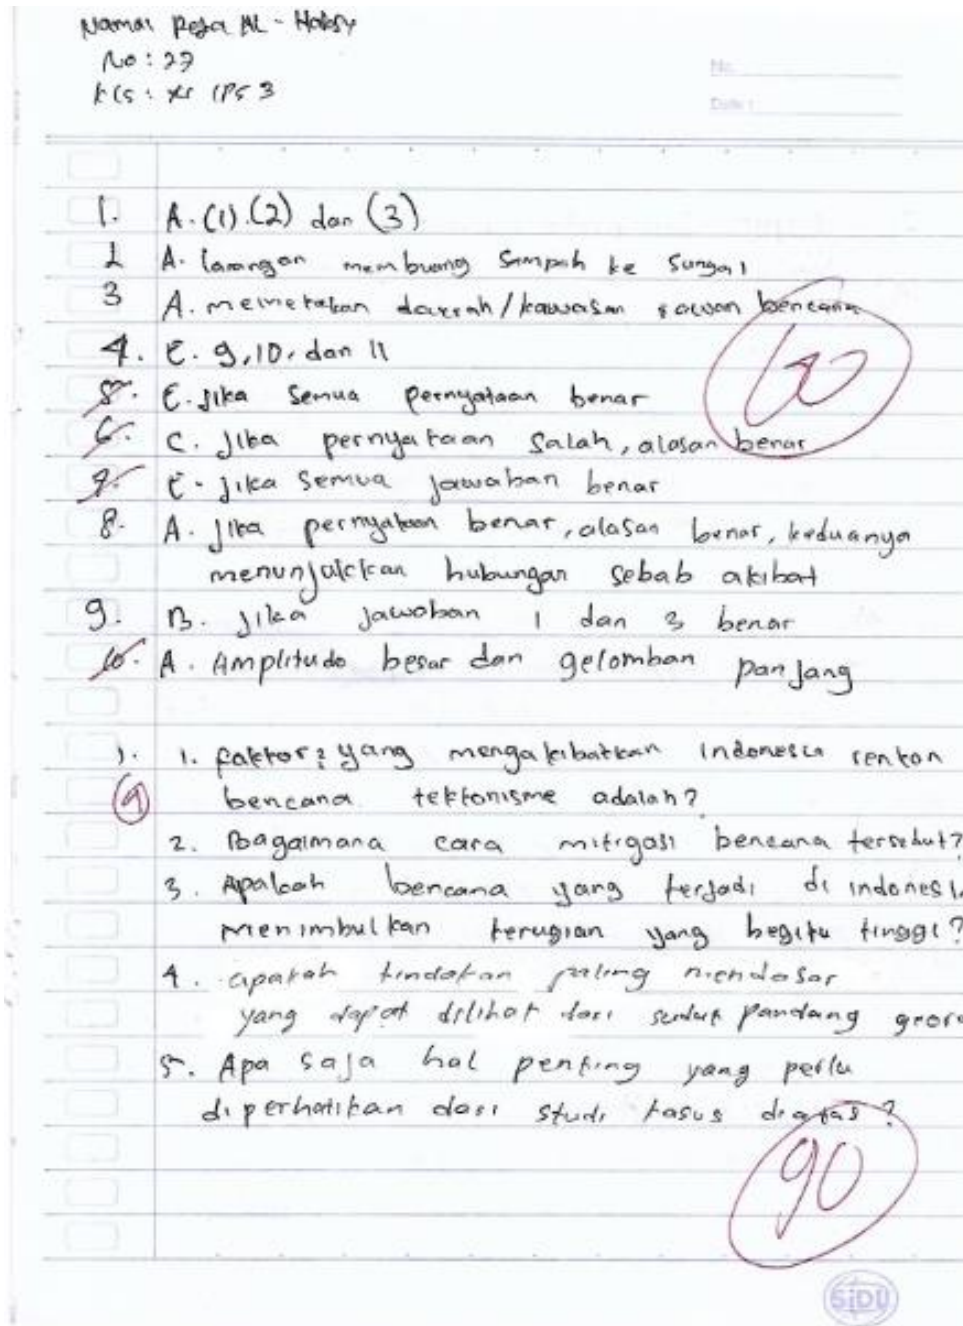 Nama: Reja AL-Haksy
No: 27
Kls: XI IPS 3
No.
Date:
1. A. (1). (2) dan (3)
2 A. larangan membuang Sampah ke Sungai
3 A. memetakan daerah/kawasan rawan bencana
4. E. 9, 10, dan 11
60
5. E. Jika Semua pernyataan benar
6. C. Jika pernyataan Salah, alasan benar
7. E. Jika Semua jawaban benar
8. A. Jika pernyataan benar, alasan benar, keduanya
menunjukkan hubungan Sebab akibat
9. B. Jika jawaban 1 dan 3 benar
10. A. Amplitudo besar dan gelomban panjang
1. 1. faktor2 yang mengakibatkan indonesia rentan
9 bencana tektonisme adalah?
2. Bagaimana cara mitigasi bencana tersebut?
3. Apakah bencana yang terjadi di indonesia
menimbulkan kerugian yang begitu tinggi?
4. apakah tindakan paling mendasar
yang dapat dilihat dari sudut pandang
5. Apa saja hal penting yang perlu
diperhatikan dari studi kasus diatas?
90
SiDU